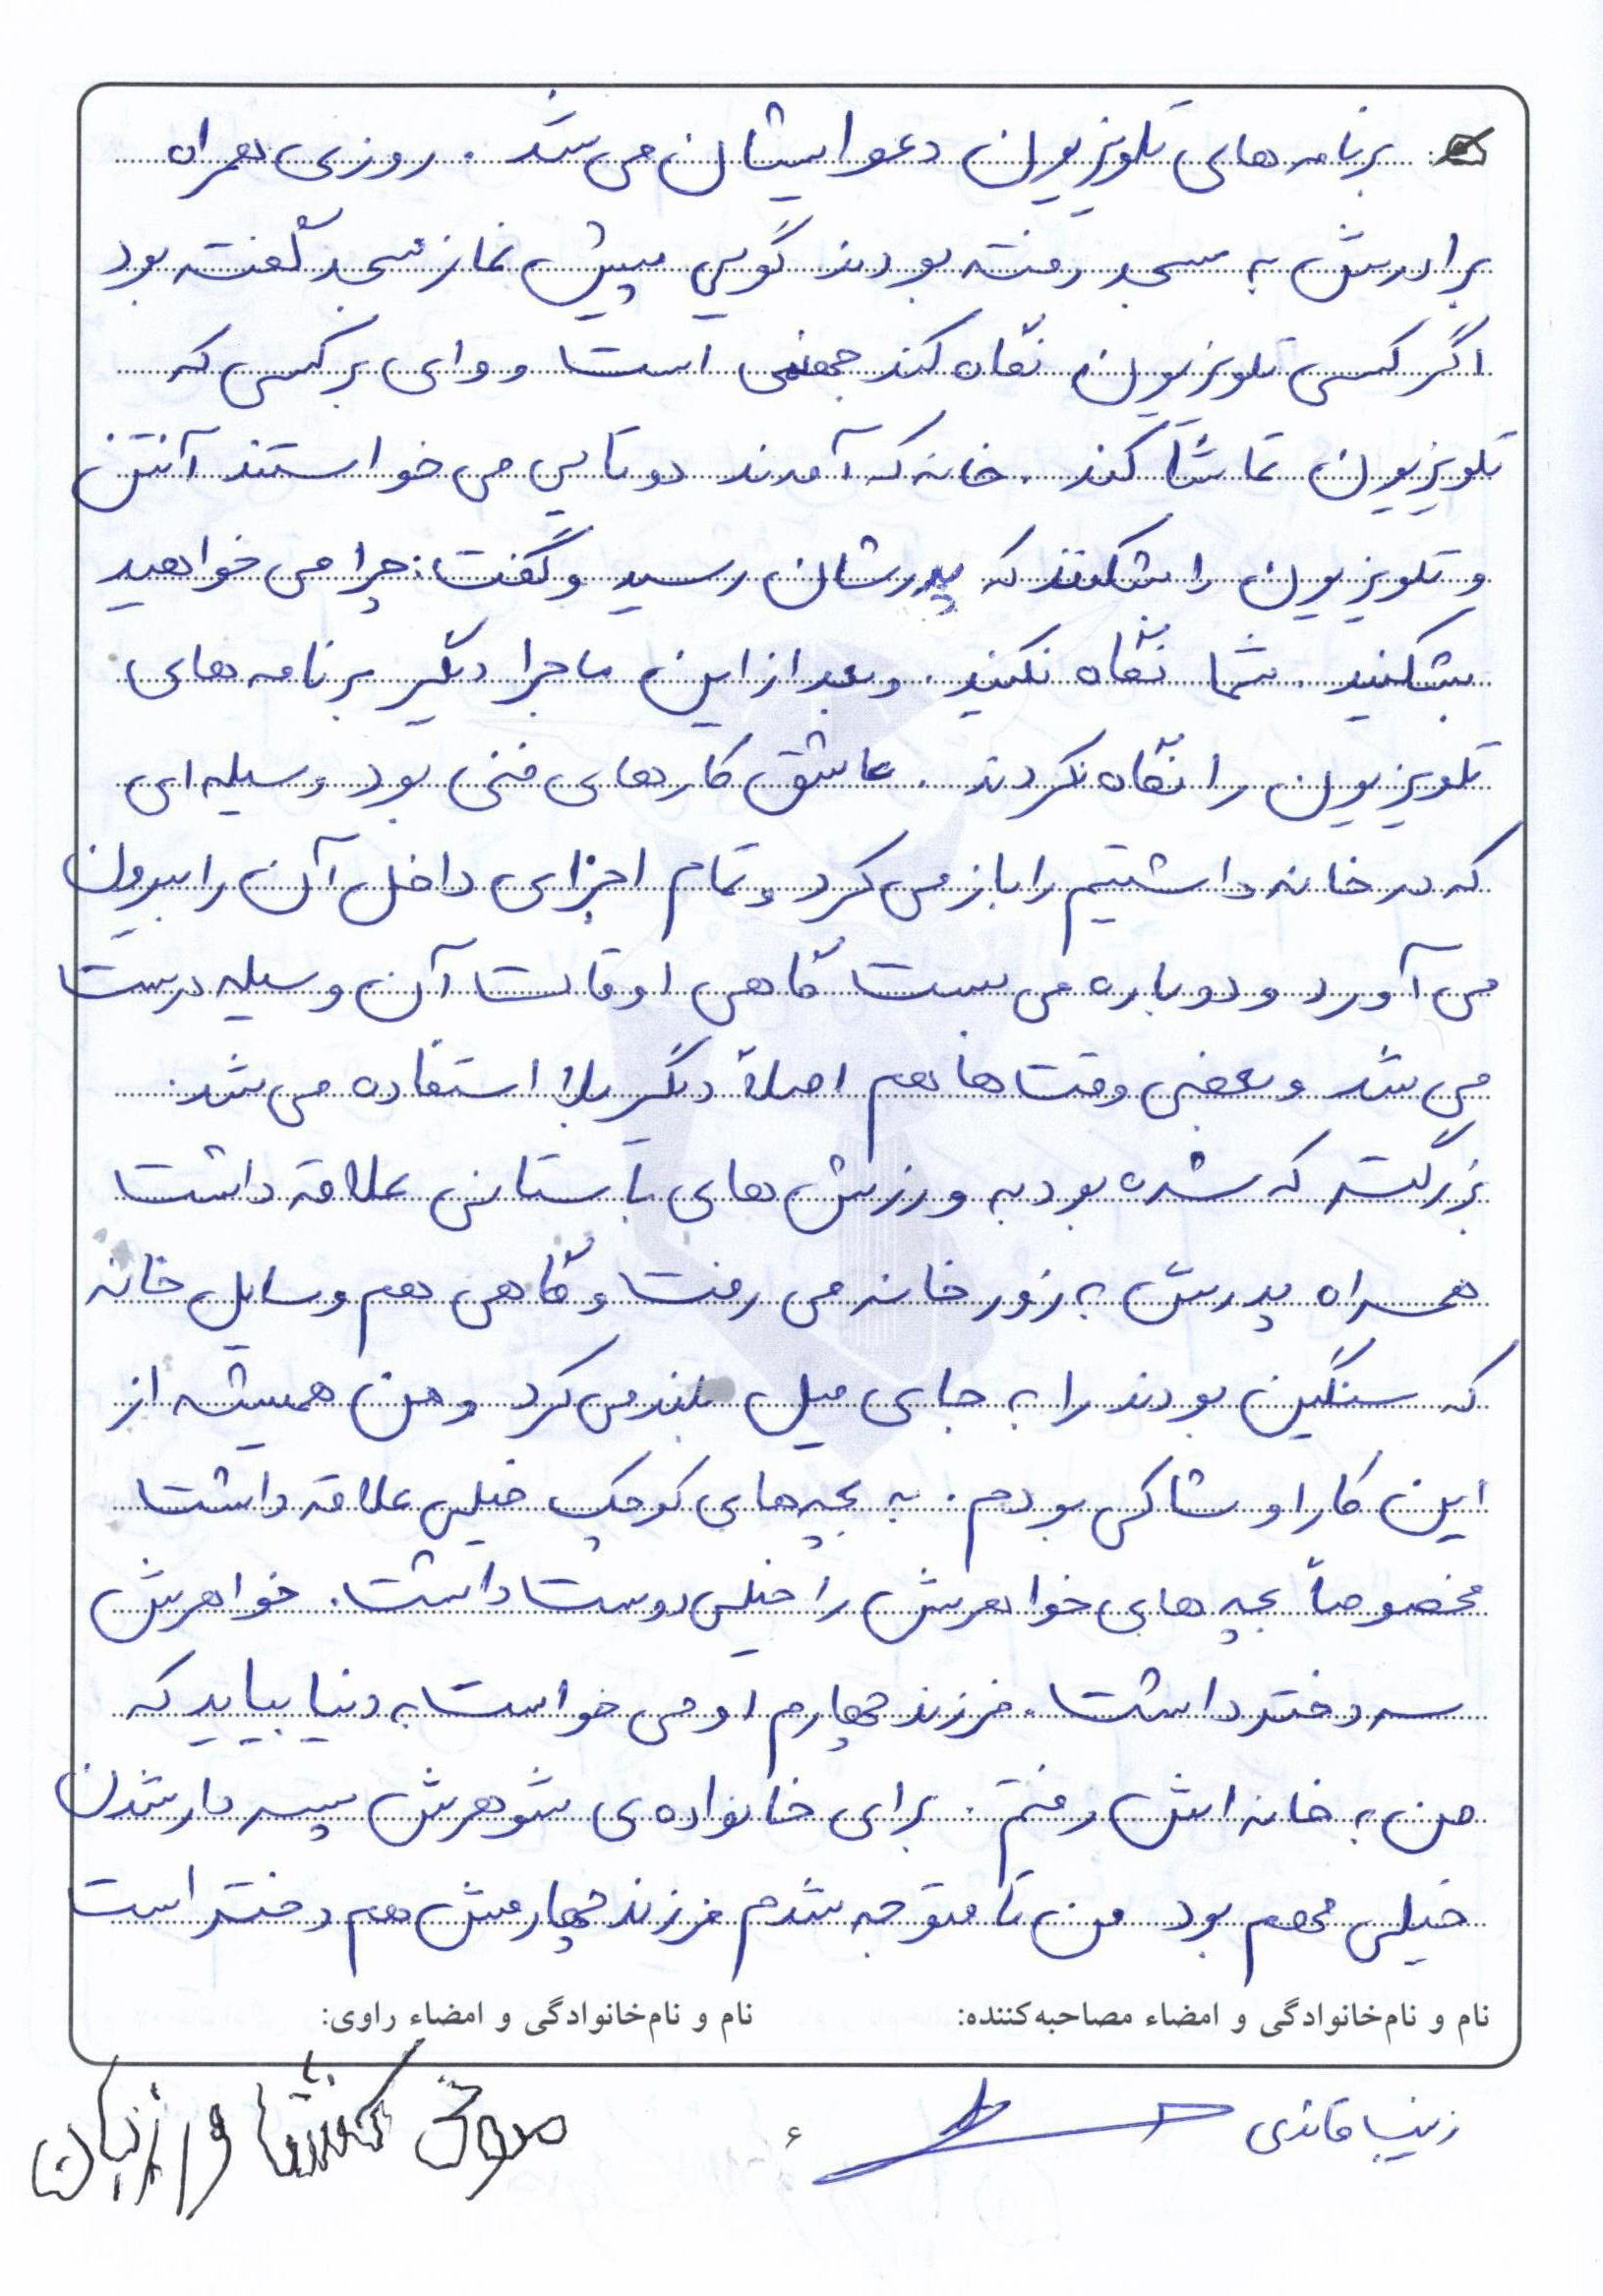 برنامه های تلویزیون دعوایشان می شد . روزی همراه
برادرش به مسجد رفته بودند گویی پیش نماز مسجد گفته بود
اگر کسی تلویزیون نگاه کند جهنمی است و وای بر کسی که
تلویزیون تماشا کند . خانه که آمدند دوتایی می خواستند آنتن
و تلویزیون را بشکنند که پدرشان رسید و گفت : چرا می خواهید
بشکنید . شما نگاه نکنید . و بعد از این ماجرا دیگر برنامه های
تلویزیون را نگاه نکردند . عاشق کارهای فنی بود وسیله ای
که در خانه داشتیم را باز می کرد و تمام اجزای داخل آن را بیرون
می آورد و دوباره می بست گاهی اوقات آن وسیله درست
می شد و بعضی وقت ها هم اصلاً دیگر بلا استفاده می شد .
بزرگتر که شده بود به ورزش های باستانی علاقه داشت
همراه پدرش به زورخانه می رفت و گاهی هم وسایل خانه
که سنگین بودند را به جای میل بلند می کرد و من همیشه از
این کار او شاکی بودم . به بچه های کوچک خیلی علاقه داشت
مخصوصاً بچه های خواهرش را خیلی دوست داشت . خواهرش
سه دختر داشت . فرزند چهارم او می خواست به دنیا بیاید که
من به خانه اش رفتم . برای خانواده ی شوهرش پسر دار شدن
خیلی مهم بود من تا متوجه شدم فرزند چهارمش هم دختر است
نام و نام‌خانوادگی و امضاء مصاحبه‌کننده: نام و نام‌خانوادگی و امضاء راوی:
زینب قائدی ۶ کشاورزیان